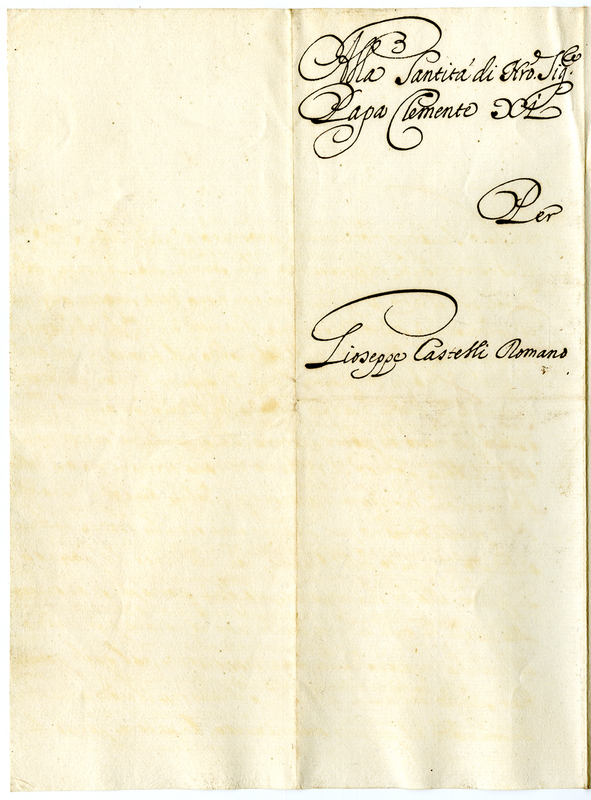 Alla Santitá di Nrō. Sig.re
Papa Clemente XI
Per
Gioseppe Castelli Romano